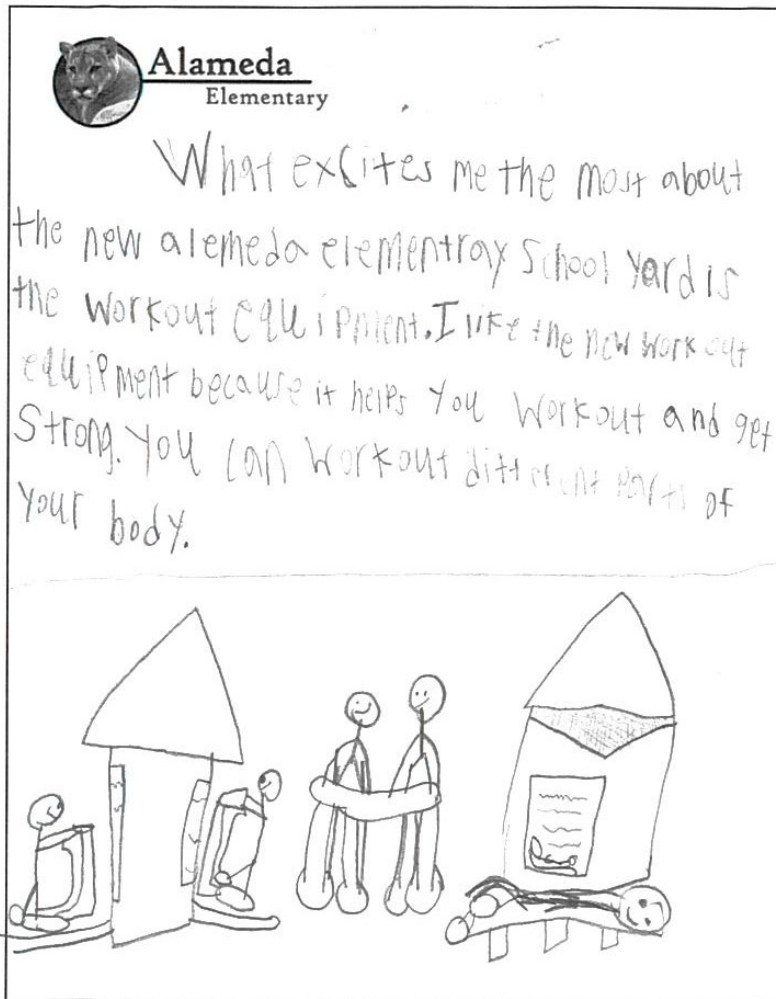 Alameda
Elementary
What excites me the most about
the new alemeda elementray School yard is
the workout equipment. I like the new work out
equipment because it helps you workout and get
Strong. You can workout different parts of
your body.